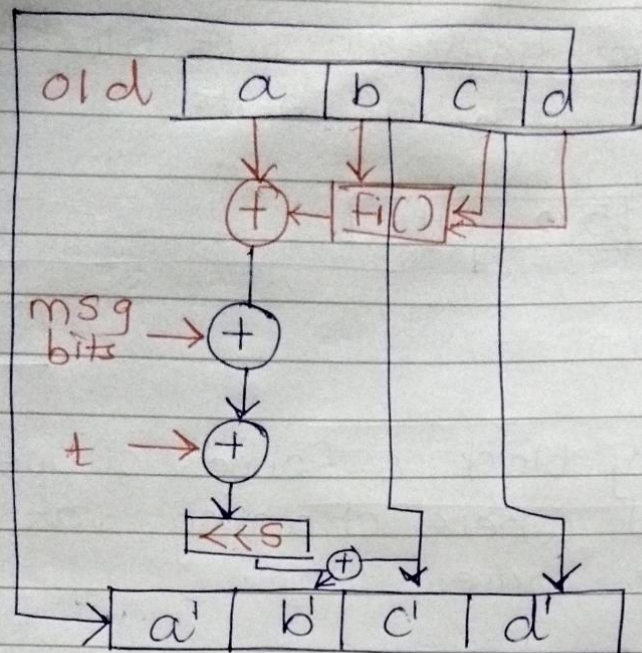 old a b c d
+ fi()
msg
bits +
t +
<<s
+
a' b' c' d'